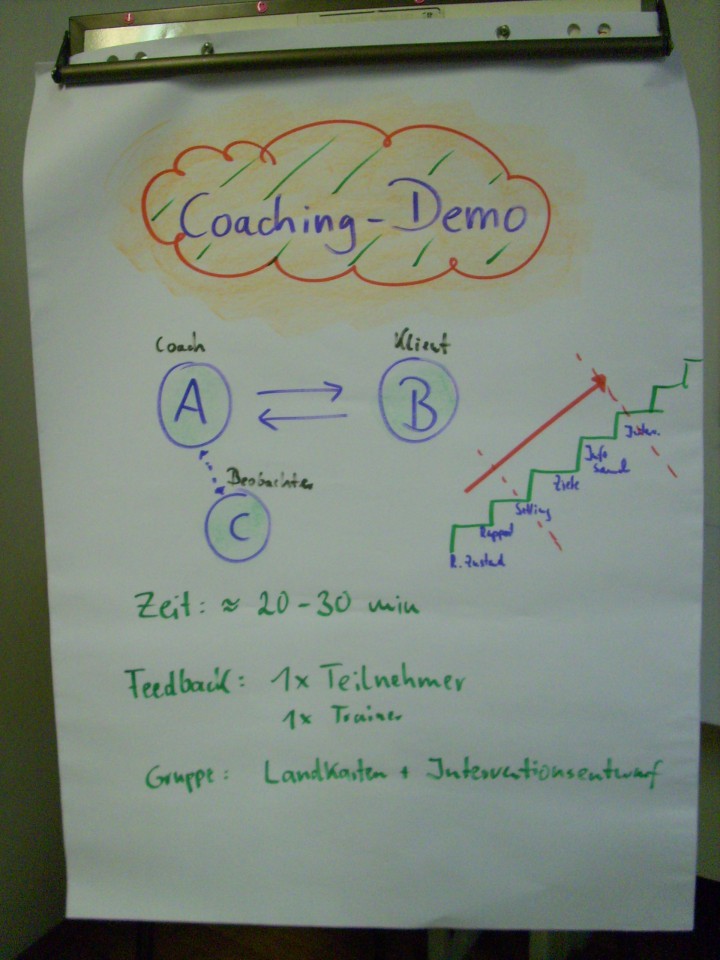 Coaching-Demo
Coach
Klient
A
B
Beobachter
C
Inter.
Info
Samml
Ziele
Setting
Rapport
R. Zustand
Zeit: ≈ 20-30 min
Feedback: 1x Teilnehmer
1x Trainer
Gruppe: Landkarten + Interventionsentwurf